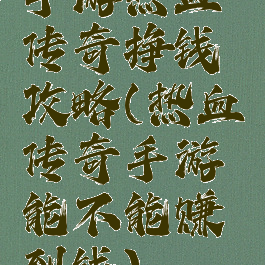 手略热血
传奇挣钱
攻略(热血
传奇手游
能不能赚
到钱)